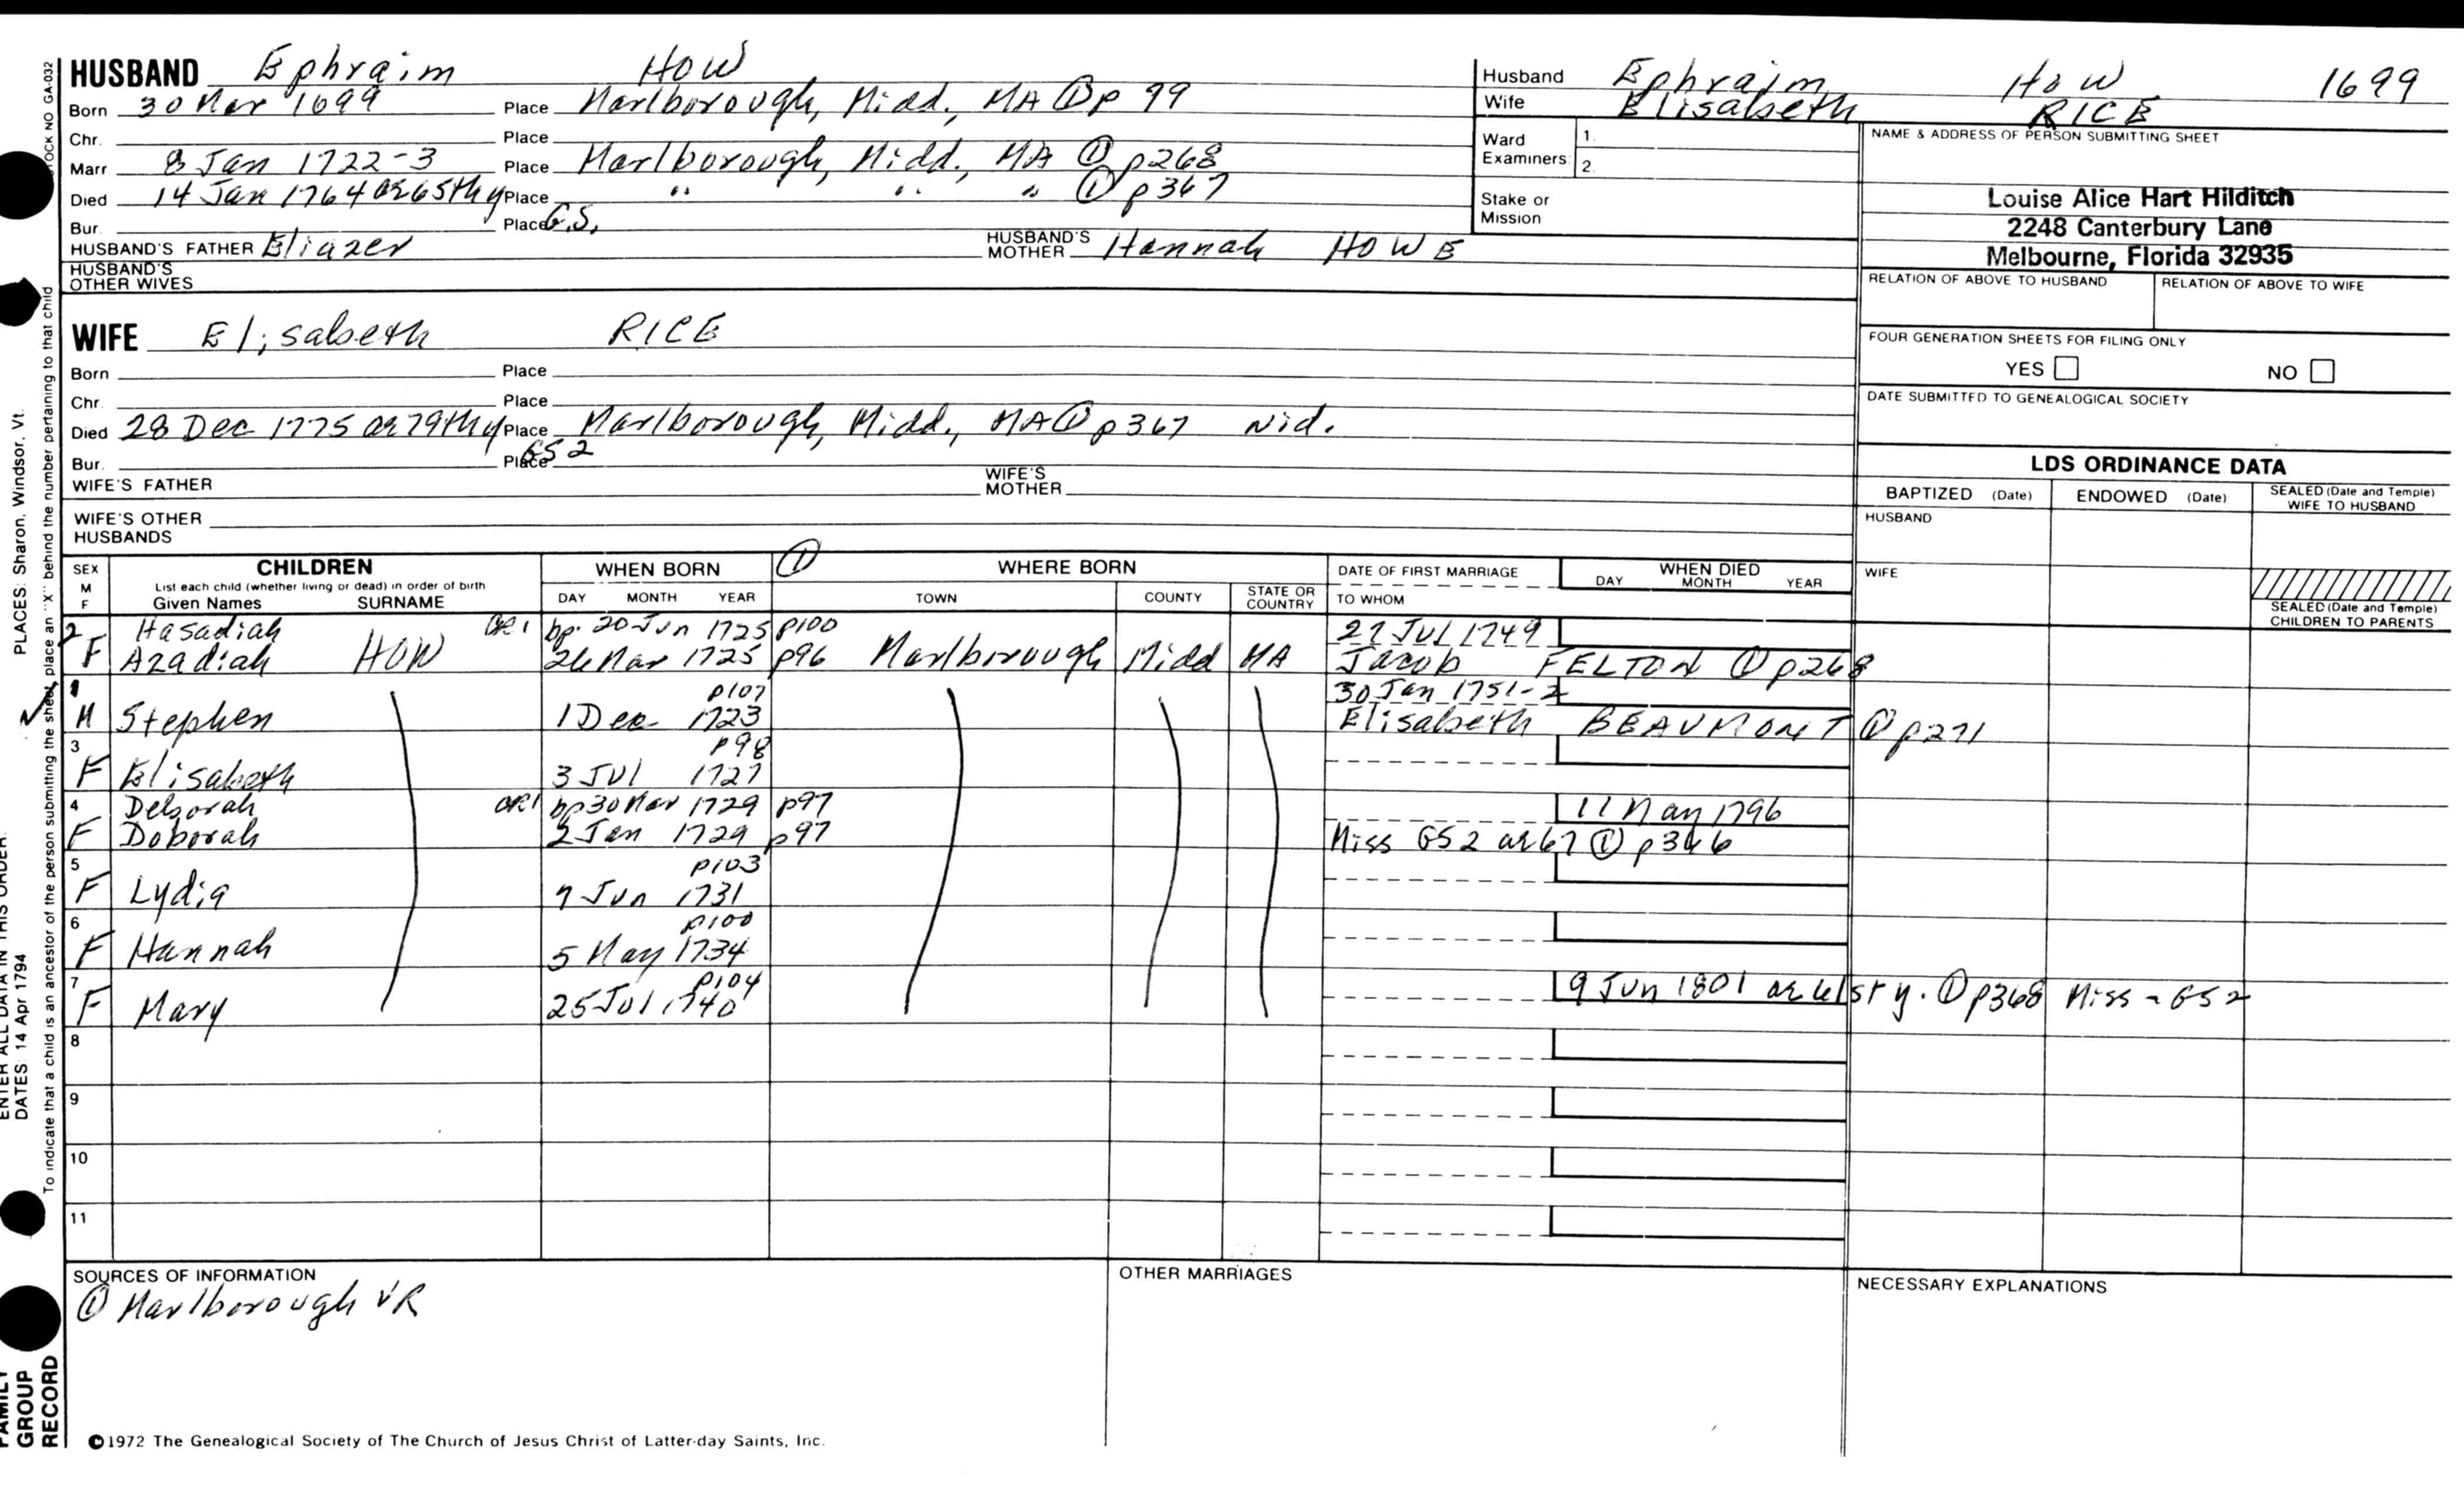 HUSBAND Ephraim HOW
Born 30 Mar 1699 Place Marlborough, Midd., MA ① p 99
Chr. Place
Marr 8 Jan 1722-3 Place Marlborough, Midd., MA ① p268
Died 14 Jan 1764 ae 65th y Place " " " ① p367
Bur. Place G.S.
HUSBAND'S FATHER Eliazer HUSBAND'S MOTHER Hannah HOWE
HUSBAND'S OTHER WIVES
Husband Ephraim HOW 1699
Wife Elisabeth RICE
Ward Examiners: 1. 2.
Stake or Mission
NAME & ADDRESS OF PERSON SUBMITTING SHEET
Louise Alice Hart Hilditch
2248 Canterbury Lane
Melbourne, Florida 32935
RELATION OF ABOVE TO HUSBAND RELATION OF ABOVE TO WIFE
FOUR GENERATION SHEETS FOR FILING ONLY
YES NO
DATE SUBMITTED TO GENEALOGICAL SOCIETY
WIFE Elisabeth RICE
Born Place
Chr. Place
Died 28 Dec 1775 ae 79th y Place Marlborough, Midd., MA ① p367 Wid.
Bur. Place GS2
WIFE'S FATHER WIFE'S MOTHER
WIFE'S OTHER HUSBANDS
LDS ORDINANCE DATA
BAPTIZED (Date) ENDOWED (Date) SEALED (Date and Temple) WIFE TO HUSBAND
HUSBAND
WIFE
SEALED (Date and Temple) CHILDREN TO PARENTS
SEX M F CHILDREN WHEN BORN ① WHERE BORN DATE OF FIRST MARRIAGE WHEN DIED
List each child (whether living or dead) in order of birth
Given Names SURNAME DAY MONTH YEAR TOWN COUNTY STATE OR COUNTRY TO WHOM DAY MONTH YEAR
2 Hasadiah CR1 bp. 20 Jun 1725 p100 27 Jul 1749
F Azadiah HOW 26 Mar 1725 p96 Marlborough Midd MA Jacob FELTON ① p268
1 p107 30 Jan 1751-2
M Stephen 1 Dec 1723 Elisabeth BEAUMONT ① p271
3 p98
F Elisabeth 3 Jul 1727
4 Deborah CR1 bp 30 Mar 1729 p97 11 May 1796
F Doborah 2 Jan 1729 p97 Miss GS2 ae 67 ① p366
5 p103
F Lydia 9 Jun 1731
6 p100
F Hannah 5 May 1734
7 p104 9 Jun 1801 ae 61st y. ① p368 Miss - GS2
F Mary 25 Jul 1740
8
9
10
11
SOURCES OF INFORMATION OTHER MARRIAGES NECESSARY EXPLANATIONS
① Marlborough VR
©1972 The Genealogical Society of The Church of Jesus Christ of Latter-day Saints, Inc.
STOCK NO GA-032
To indicate that a child is an ancestor of the person submitting the sheet, place an "X" behind the number pertaining to that child
PLACES: Sharon, Windsor, Vt.
ENTER ALL DATA IN THIS ORDER:
DATES: 14 Apr 1794
FAMILY GROUP RECORD